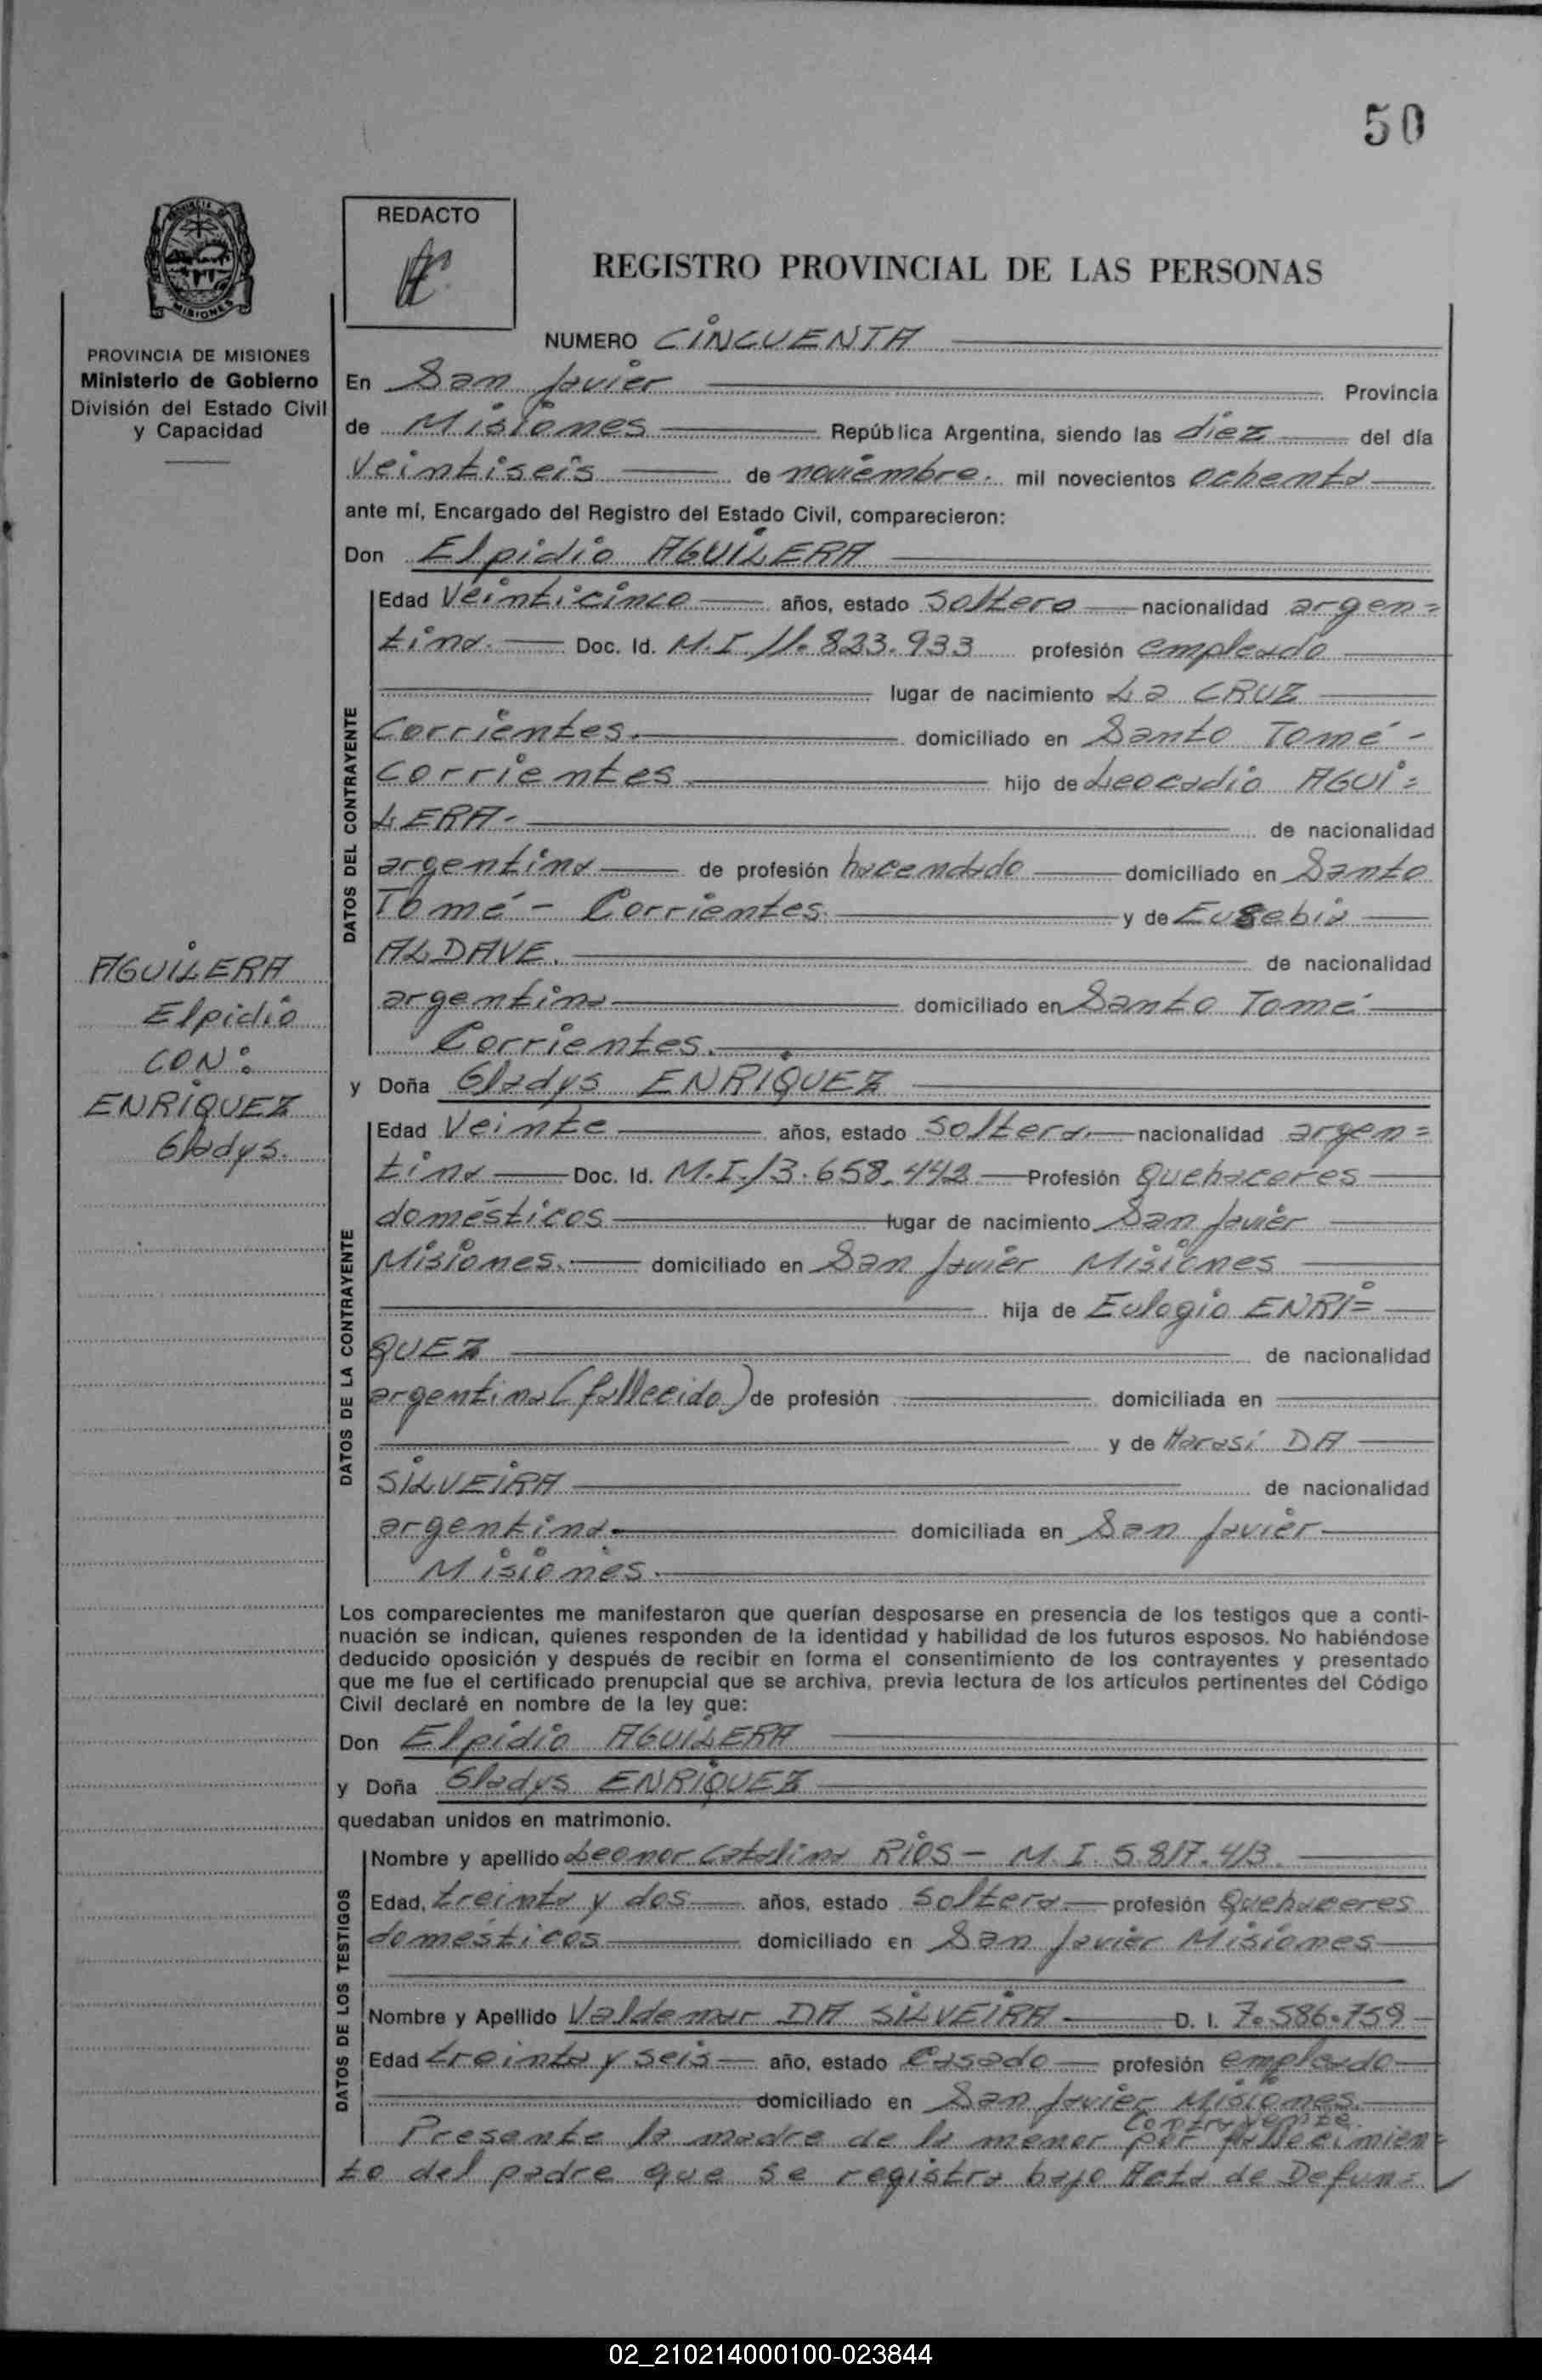 50
REDACTO
REGISTRO PROVINCIAL DE LAS PERSONAS
PROVINCIA DE MISIONES
Ministerio de Gobierno
División del Estado Civil
y Capacidad
NUMERO CINCUENTA
En San Javier Provincia
de Misiones República Argentina, siendo las diez del día
veintiseis de noviembre. mil novecientos ochenta
ante mí, Encargado del Registro del Estado Civil, comparecieron:
Don Elpidio AGUILERA
DATOS DEL CONTRAYENTE
Edad Veinticinco años, estado Soltero nacionalidad argen=
tina. Doc. Id. M.I. 11.823.933 profesión empleado
lugar de nacimiento La CRUZ
Corrientes. domiciliado en Santo Tomé -
Corrientes hijo de Leocadio AGUI=
LERA- de nacionalidad
argentina de profesión hacendado domiciliado en Santo
Tomé - Corrientes. y de Eusebia
ALDAVE. de nacionalidad
argentina domiciliado en Santo Tomé
Corrientes.
AGUILERA
Elpidio
CON:
ENRIQUEZ
Gladys.
y Doña Gladys ENRIQUEZ
DATOS DE LA CONTRAYENTE
Edad Veinte años, estado Soltera. nacionalidad argen=
tina Doc. Id. M.I. 13.658.442 Profesión Quehaceres
domésticos lugar de nacimiento San Javier
Misiones. domiciliado en San Javier Misiones
hija de Eulogio ENRI=
QUEZ de nacionalidad
argentina (fallecido) de profesión domiciliada en
y de DA
SILVEIRA de nacionalidad
argentina. domiciliada en San Javier
Misiones.
Los comparecientes me manifestaron que querían desposarse en presencia de los testigos que a conti-
nuación se indican, quienes responden de la identidad y habilidad de los futuros esposos. No habiéndose
deducido oposición y después de recibir en forma el consentimiento de los contrayentes y presentado
que me fue el certificado prenupcial que se archiva, previa lectura de los artículos pertinentes del Código
Civil declaré en nombre de la ley que:
Don Elpidio AGUILERA
y Doña Gladys ENRIQUEZ
quedaban unidos en matrimonio.
DATOS DE LOS TESTIGOS
Nombre y apellido Leonor Catalina RIOS - M.I. 5.817.413.
Edad, treinta y dos años, estado Soltera. profesión Quehaceres
domésticos domiciliado en San Javier Misiones
Nombre y Apellido Valdemar DA SILVEIRA D. I. 7.586.759
Edad treinta y seis año, estado Casado profesión empleado
domiciliado en San Javier Misiones.
contrayente.
Presente la madre de la menor por fallecimien=
to del padre que se registra bajo Acta de Defun=
02_210214000100-023844